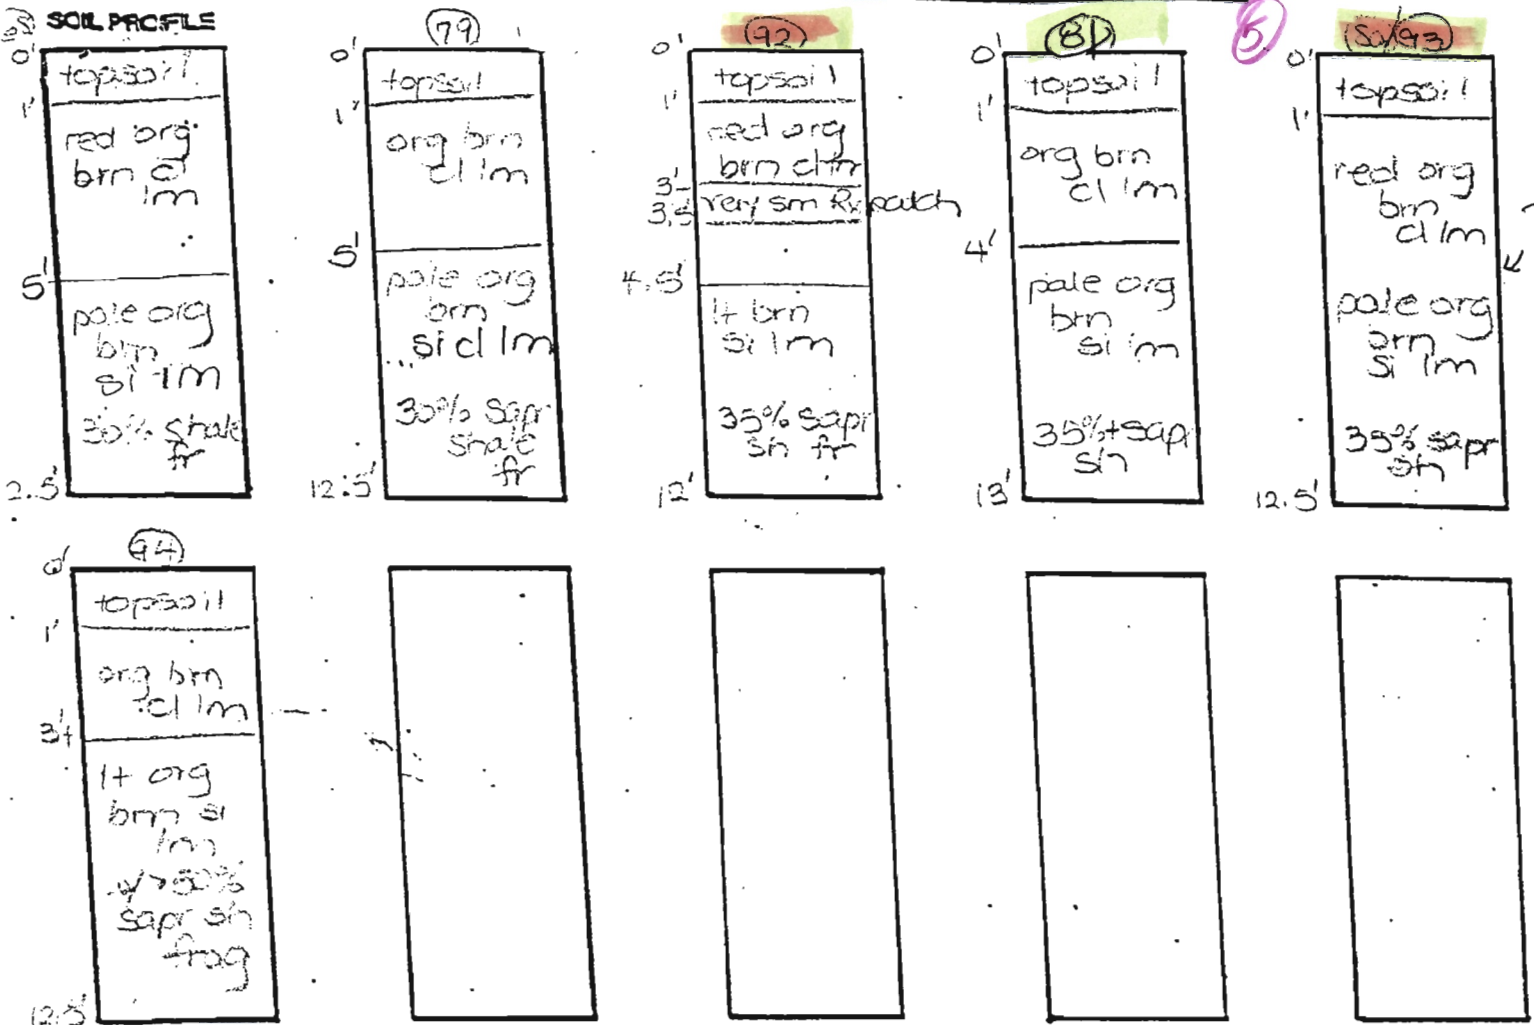 SOIL PROFILE
0'
topsoil
1'
red org
brn cl
lm
5'
pale org
brn
si lm
30% shale
fr
2.5'
79
0'
topsoil
1'
org brn
cl lm
5'
pale org
brn
si cl lm
30% sapr
shale
fr
12.5'
92
0'
topsoil
1'
red org
brn cl lm
3'
very sm Rx patch
3.5'
4.5'
lt brn
si lm
35% sapr
sh fr
12'
81
0'
topsoil
1'
org brn
cl lm
4'
pale org
brn
si lm
35%+ sapr
sh
13'
5
93
0'
topsoil
1'
red org
brn
cl lm
pale org
brn
si lm
35% sapr
sh
12.5'
94
0'
topsoil
1'
org brn
cl lm
3'+
lt org
brn si
lm
w/>50%
sapr sh
frag
12.5'